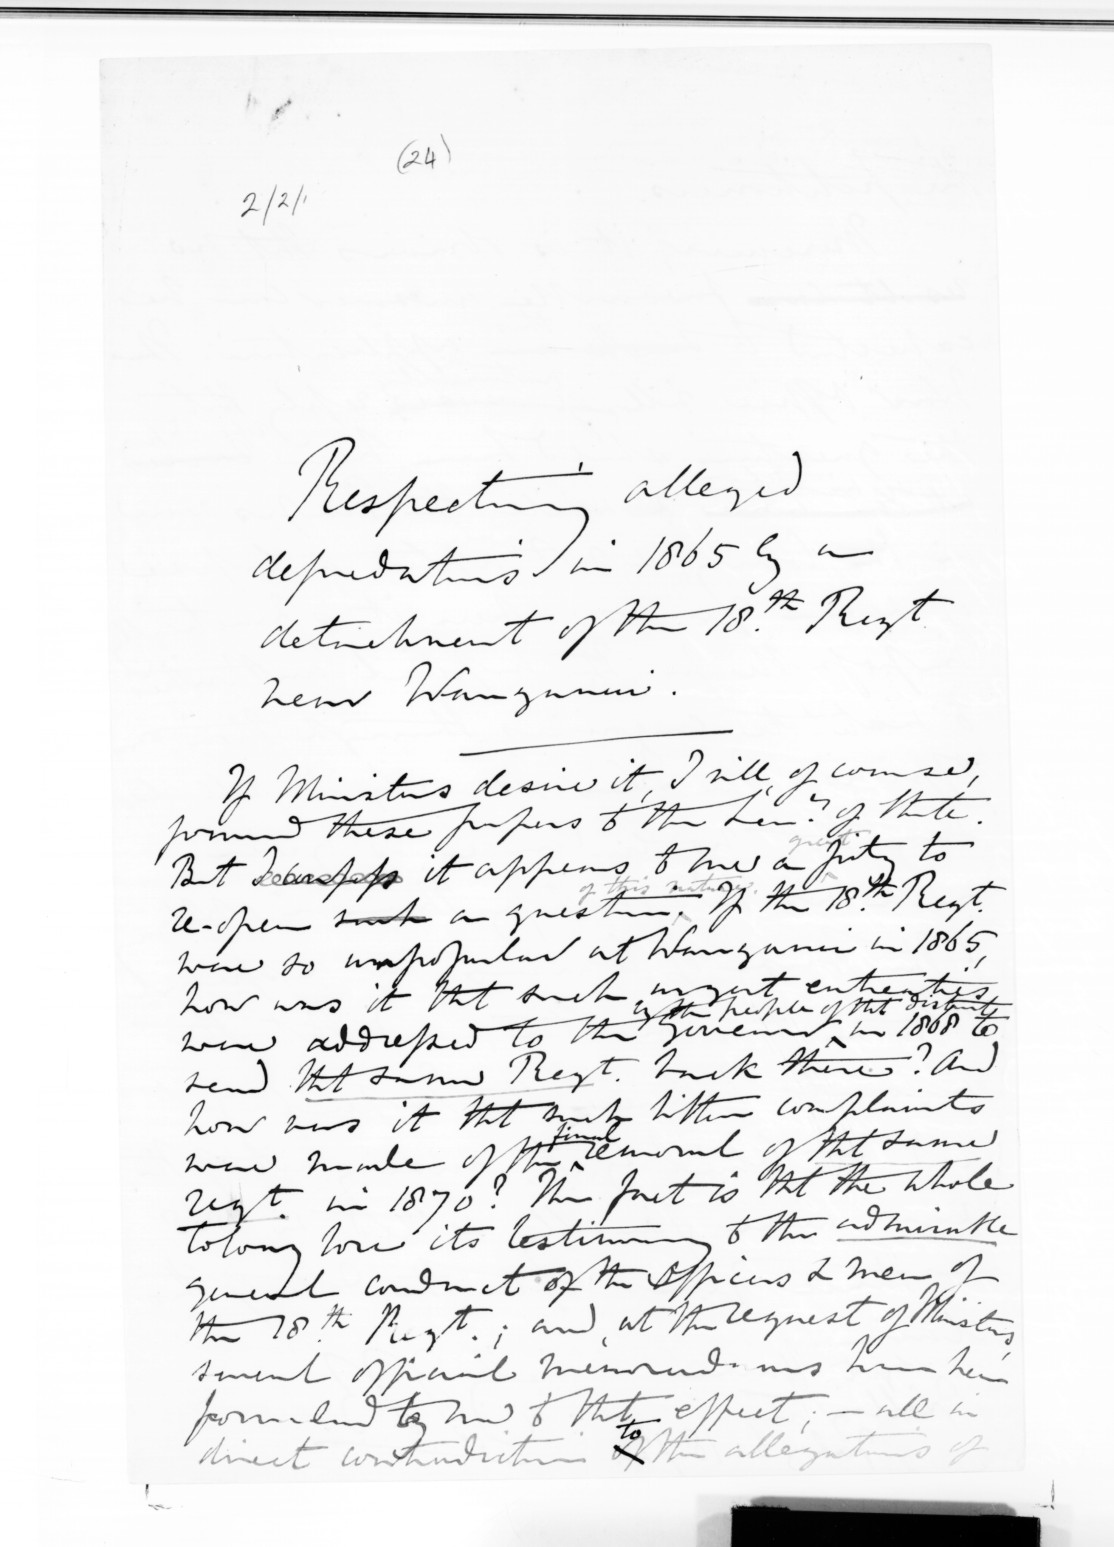 (24)
2/2/
Respecting alleged
depredations in 1865 by a
detachment of the 18.th Regt.
near Wanganui.
If Ministers desire it, I will, of course,
forward these papers to the Sec.y of State.
great
But it appears to me a pity to
of this nature.
re-open such a question. If the 18.th Regt.
were so unpopular at Wanganui in 1865,
how was it that such urgent entreaties
by the people of that district
were addressed to the Governor in 1868 to
send that same Regt. back there? And
how was it that such bitter complaints
final
were made of the removal of that same
regt. in 1870? The fact is that the whole
Colony bore its testimony to the admirable
general conduct of the officers & men of
the 18th Regt.; and, at the request of Ministers,
several official memorandums have been
forwarded by me to that effect; – all in
to
direct contradiction of the allegations of